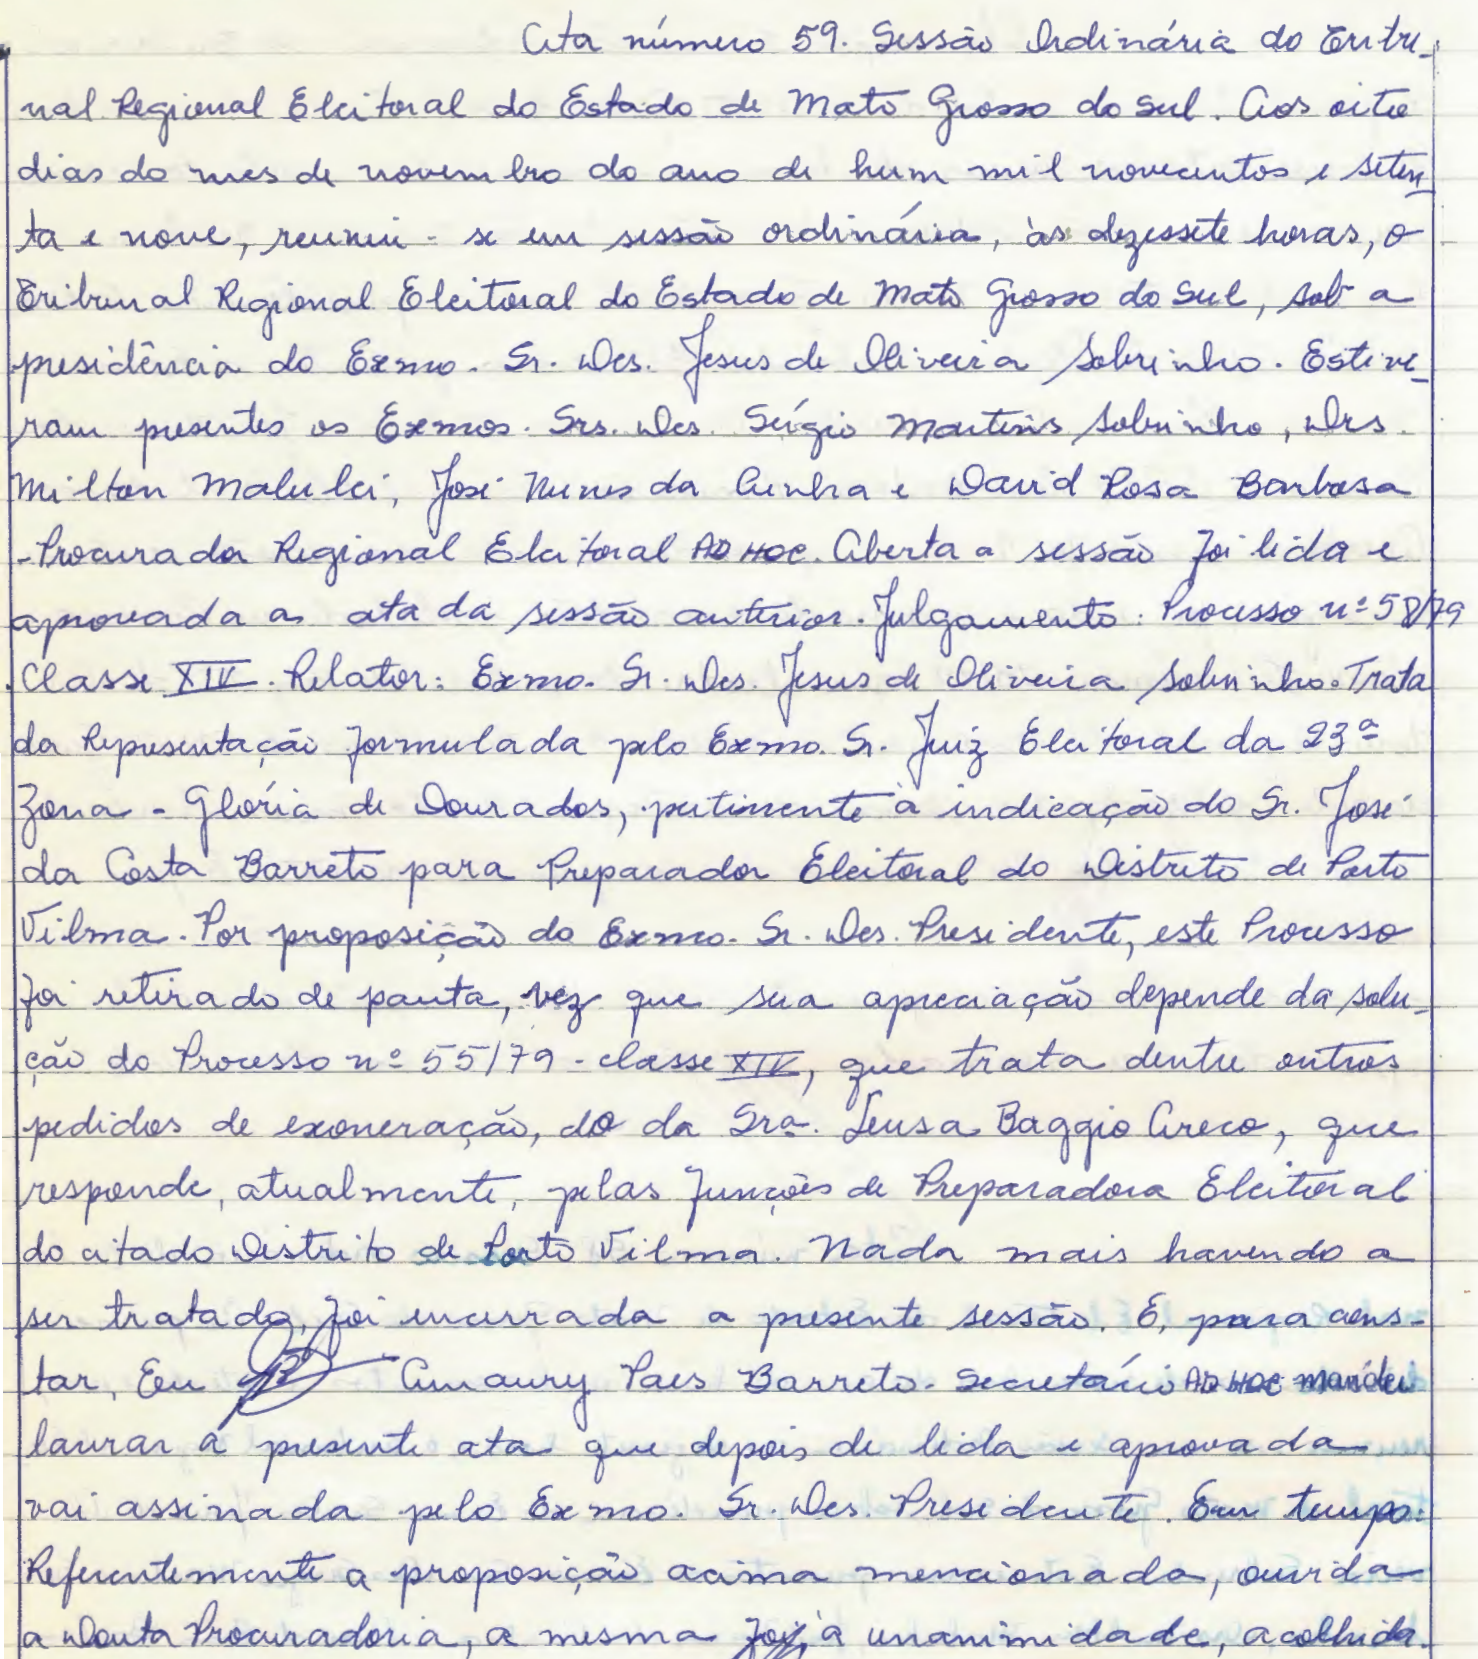 Ata número 59. Sessão Ordinária do Tribu-
nal Regional Eleitoral do Estado de Mato Grosso do Sul. Aos oito
dias do mes de novembro do ano de hum mil novecentos e seten
ta e nove, reuniu-se em sessão ordinária, às dezessete horas, o
Tribunal Regional Eleitoral do Estado de Mato Grosso do Sul, sob a
presidência do Exmo. Sr. Des. Jesus de Oliveira Sobrinho. Estive-
ram presentes os Exmos. Srs. Des. Sérgio Martins Sobrinho, Drs.
Milton Malulei, José Nunes da Cunha e David Rosa Barbosa
-Procurador Regional Eleitoral AD HOC. Aberta a sessão foi lida e
aprovada a ata da sessão anterior. Julgamento: Processo nº 58/79
Classe XIV. Relator: Exmo. Sr. Des. Jesus de Oliveira Sobrinho. Trata
da Representação formulada pelo Exmo. Sr. Juiz Eleitoral da 23ª
Zona - Glória de Dourados, pertinente à indicação do Sr. José
da Costa Barreto para Preparador Eleitoral do Distrito de Porto
Vilma. Por proposição do Exmo. Sr. Des. Presidente, este Processo
foi retirado de pauta, vez que sua apreciação depende da solu-
ção do Processo nº 55/79 - classe XIV, que trata dentre outros
pedidos de exoneração, do da Sra. Leusa Baggio Greco, que
responde, atualmente, pelas funções de Preparadora Eleitoral
do citado Distrito de Porto Vilma. Nada mais havendo a
ser tratado, foi encerrada a presente sessão. E, para cons-
tar, Eu Amaury Paes Barreto. Secretário AD HOC mandei
lavrar a presente ata que depois de lida e aprovada
vai assinada pelo Exmo. Sr. Des. Presidente. Em tempo:
Referentemente a proposição acima mencionada, ouvida
a Douta Procuradoria, a mesma foi, à unanimidade, acolhida.